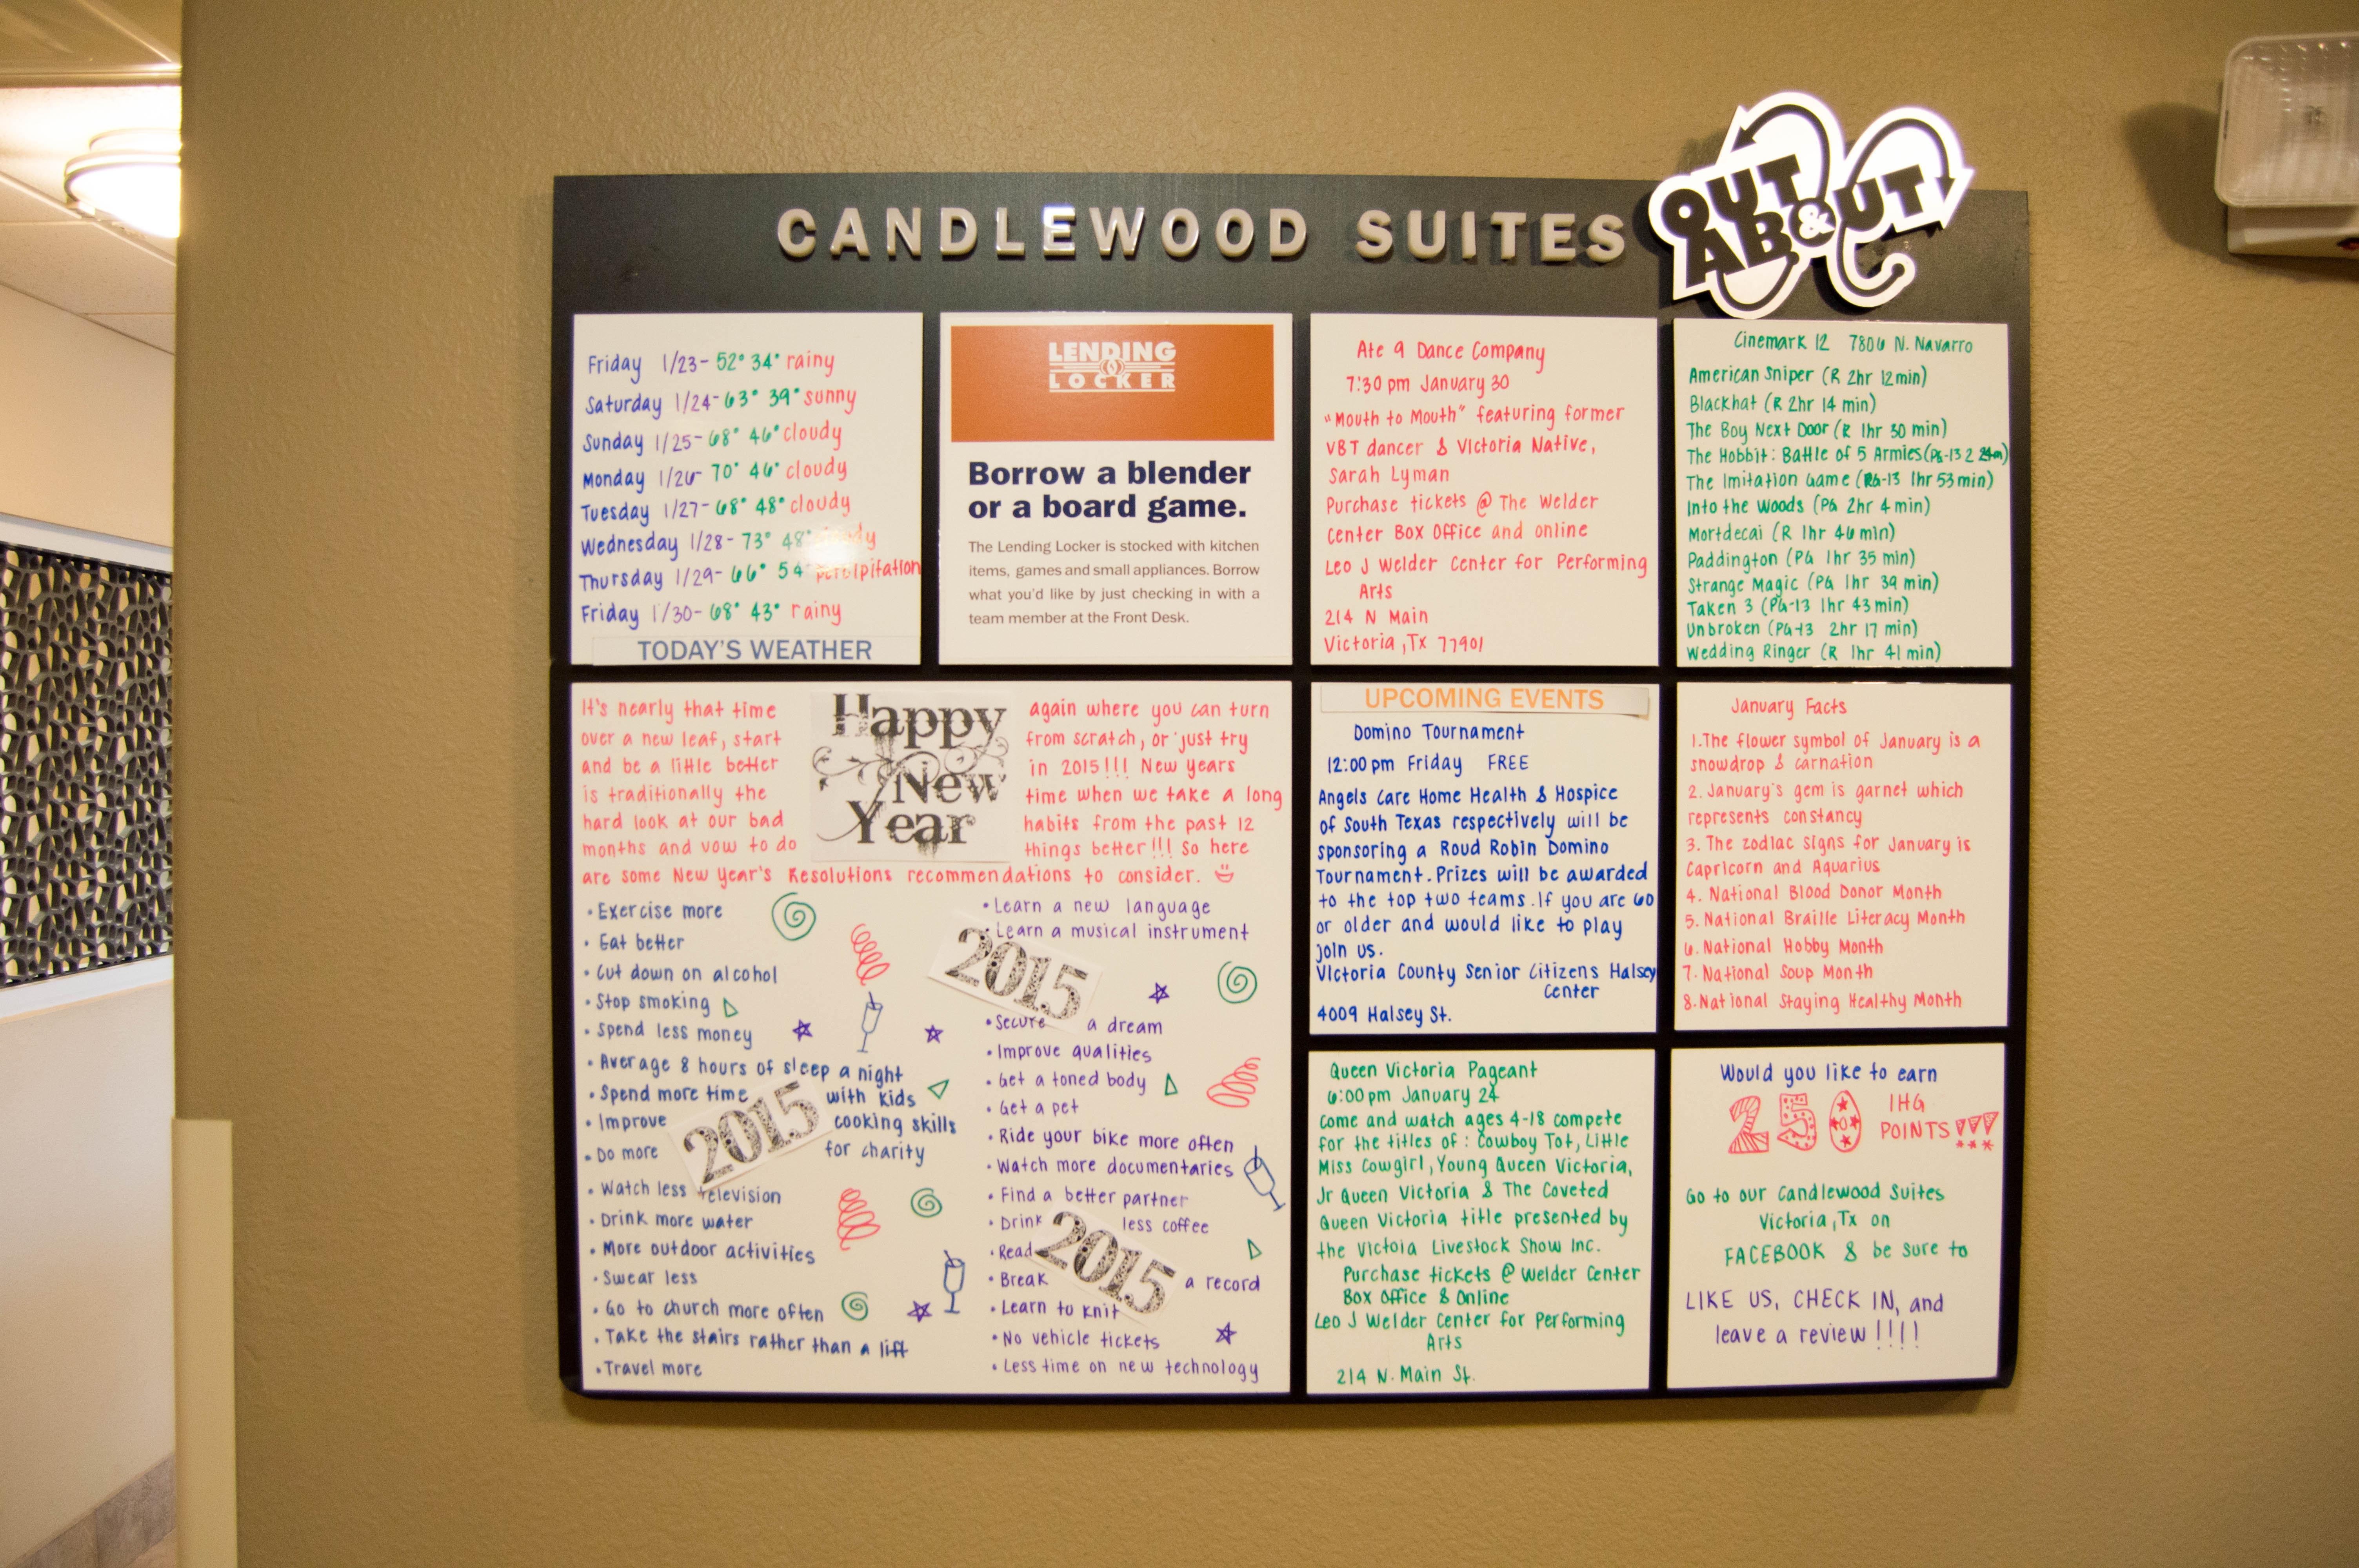 CANDLEWOOD SUITES
OUT
&
ABOUT
Friday 1/23- 52° 34° rainy
Saturday 1/24- 63° 39° sunny
Sunday 1/25- 68° 46° cloudy
Monday 1/26- 70° 46° cloudy
Tuesday 1/27- 68° 48° cloudy
Wednesday 1/28- 73° 48°
Thursday 1/29- 66° 54°
Friday 1/30- 68° 43° rainy
TODAY'S WEATHER
LENDING
LOCKER
Borrow a blender
or a board game.
The Lending Locker is stocked with kitchen
items, games and small appliances. Borrow
what you'd like by just checking in with a
team member at the Front Desk.
Ate 9 Dance Company
7:30 pm January 30
"Mouth to Mouth" featuring former
VBT dancer & Victoria Native,
Sarah Lyman
Purchase tickets @ The Welder
Center Box Office and online
Leo J Welder Center for Performing
Arts
214 N Main
Victoria, Tx 77901
Cinemark 12 7806 N. Navarro
American Sniper (R 2hr 12min)
Blackhat (R 2hr 14 min)
The Boy Next Door (R 1hr 30 min)
The Hobbit: Battle of 5 Armies (PG-13 2
The Imitation Game (PG-13 1hr 53min)
Into the Woods (PG 2hr 4 min)
Mortdecai (R 1hr 46 min)
Paddington (PG 1hr 35 min)
Strange Magic (PG 1hr 39 min)
Taken 3 (PG-13 1hr 43min)
Unbroken (PG-13 2hr 17 min)
Wedding Ringer (R 1hr 41 min)
It's nearly that time again where you can turn
over a new leaf, start from scratch, or just try
and be a little better in 2015!!! New years
is traditionally the time when we take a long
hard look at our bad habits from the past 12
months and vow to do things better!!! So here
are some New Year's Resolutions recommendations to consider.
Happy
New
Year
• Exercise more
• Eat better
• Cut down on alcohol
• Stop smoking
• Spend less money
• Average 8 hours of sleep a night
• Spend more time with kids
• Improve cooking skills
• Do more for charity
• Watch less television
• Drink more water
• More outdoor activities
• Swear less
• Go to church more often
• Take the stairs rather than a lift
• Travel more
2015
• Learn a new language
• Learn a musical instrument
2015
• Secure a dream
• Improve qualities
• Get a toned body
• Get a pet
• Ride your bike more often
• Watch more documentaries
• Find a better partner
• Drink less coffee
• Read
• Break a record
• Learn to knit
• No vehicle tickets
• Less time on new technology
2015
UPCOMING EVENTS
Domino Tournament
12:00 pm Friday FREE
Angels Care Home Health & Hospice
of South Texas respectively will be
sponsoring a Roud Robin Domino
Tournament. Prizes will be awarded
to the top two teams. If you are 60
or older and would like to play
join us.
Victoria County Senior Citizens Halsey
Center
4009 Halsey St.
January Facts
1. The flower symbol of January is a
snowdrop & carnation
2. January's gem is garnet which
represents constancy
3. The zodiac signs for January is
Capricorn and Aquarius
4. National Blood Donor Month
5. National Braille Literacy Month
6. National Hobby Month
7. National Soup Month
8. National Staying Healthy Month
Queen Victoria Pageant
6:00 pm January 24
Come and watch ages 4-18 compete
for the titles of: Cowboy Tot, Little
Miss Cowgirl, Young Queen Victoria,
Jr Queen Victoria & The Coveted
Queen Victoria title presented by
the Victoia Livestock Show Inc.
Purchase tickets @ Welder Center
Box Office & Online
Leo J Welder Center for Performing
Arts
214 N. Main St.
Would you like to earn
250 IHG
POINTS!!!
Go to our Candlewood Suites
Victoria, Tx on
FACEBOOK & be sure to
LIKE US, CHECK IN, and
leave a review!!!!